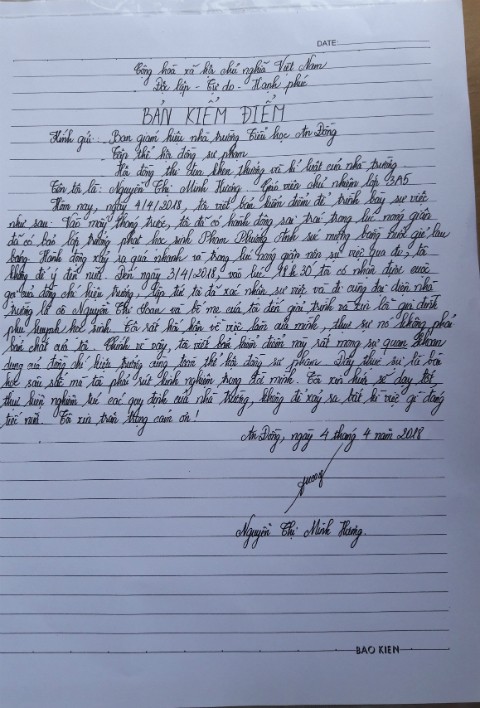 DATE:
Cộng hoà xã hội chủ nghĩa Việt Nam
Độc lập - Tự do - Hạnh phúc
BẢN KIỂM ĐIỂM
Kính gửi: - Ban giám hiệu nhà trường Tiểu học An Đồng
- Tập thể hội đồng sư phạm
- Hội đồng thi đua khen thưởng và kỉ luật của nhà trường
Tên tôi là: Nguyễn Thị Minh Hương. Giáo viên chủ nhiệm lớp 3A5
Hôm nay, ngày 4/4/2018, tôi viết bản kiểm điểm để trình bày sự việc
như sau: Vào mấy tháng trước, tôi đã có hành động sai trái trong lúc nóng giận
đã có bảo lớp trưởng phạt học sinh Phạm Phương Anh súc miệng bằng nước giẻ lau
bảng. Hành động xảy ra quá nhanh và trong lúc nóng giận nên sự việc qua đi, tôi
không để ý đến nữa. Đến ngày 3/4/2018, vào lúc 11h30, tôi có nhận được cuộc
gọi của đồng chí hiệu trưởng, lập tức tôi đã xác nhận sự việc và đi cùng đại diện nhà
trường là cô Nguyễn Thị Loan và bố mẹ của tôi đến giải trình và xin lỗi gia đình
phụ huynh học sinh. Tôi rất hối hận về việc làm của mình, thực sự nó không phải
bản chất của tôi. Chính vì vậy, tôi viết bản kiểm điểm này rất mong sự quan khoan
dung của đồng chí hiệu trưởng cùng toàn thể hội đồng sư phạm. Đây thực sự là bài
học sâu sắc mà tôi phải rút kinh nghiệm trong đời mình. Tôi xin hứa sẽ dạy tốt,
thực hiện nghiêm túc các quy định của nhà trường, không để xảy ra bất kì việc gì đáng
tiếc nữa. Tôi xin trân trọng cảm ơn!
An Đồng, ngày 4 tháng 4 năm 2018
Hương
Nguyễn Thị Minh Hương.
BAO KIEN